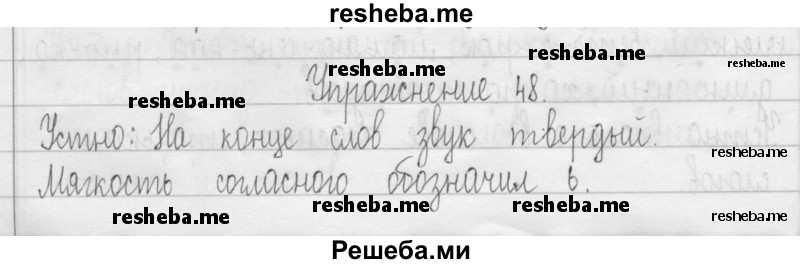 resheba.me
resheba.me
resheba.me resheba.me
resheba.me Упражнение 48.
Устно: На конце слов звук твердый.
resheba.me
Мягкость согласного обозначил ь.
resheba.me resheba.me resheba.me resheba.me
Решеба.ми